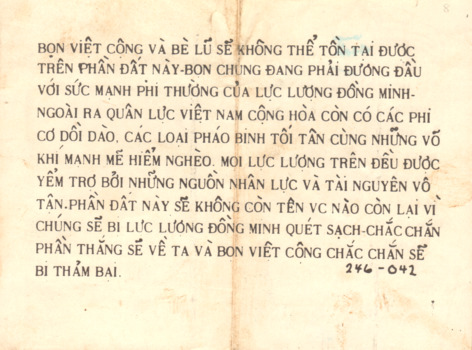 BỌN VIỆT CỘNG VÀ BÈ LŨ SẼ KHÔNG THỂ TỒN TẠI ĐƯỢC
TRÊN PHẦN ĐẤT NÀY-BỌN CHÚNG ĐANG PHẢI ĐƯƠNG ĐẦU
VỚI SỨC MẠNH PHI THƯỜNG CỦA LỰC LƯỢNG ĐỒNG MINH-
NGOÀI RA QUÂN LỰC VIỆT NAM CỘNG HÒA CÒN CÓ CÁC PHI
CƠ DỒI DÀO, CÁC LOẠI PHÁO BINH TỐI TÂN CÙNG NHỮNG VÕ
KHÍ MẠNH MẼ HIỂM NGHÈO. MỌI LỰC LƯỢNG TRÊN ĐỀU ĐƯỢC
YỂM TRỢ BỞI NHỮNG NGUỒN NHÂN LỰC VÀ TÀI NGUYÊN VÔ
TẬN.PHẦN ĐẤT NÀY SẼ KHÔNG CÒN TÊN VC NÀO CÒN LẠI VÌ
CHÚNG SẼ BỊ LỰC LƯỢNG ĐỒNG MINH QUÉT SẠCH-CHẮC CHẮN
PHẦN THẮNG SẼ VỀ TA VÀ BỌN VIỆT CỘNG CHẮC CHẮN SẼ
BỊ THẢM BẠI. 246-042